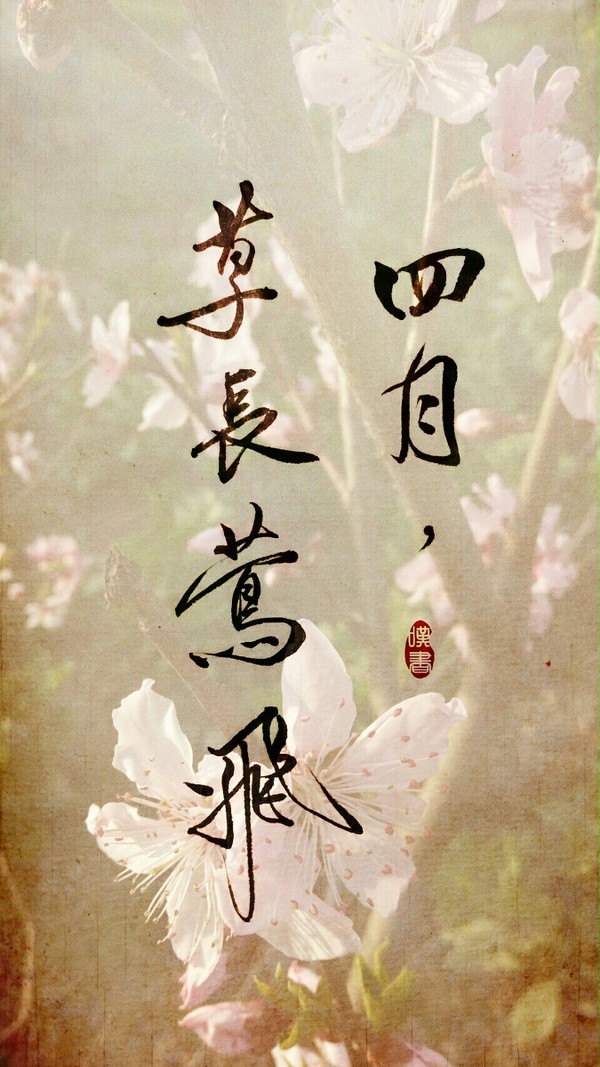 四月，
草長鶯飛
嘆書